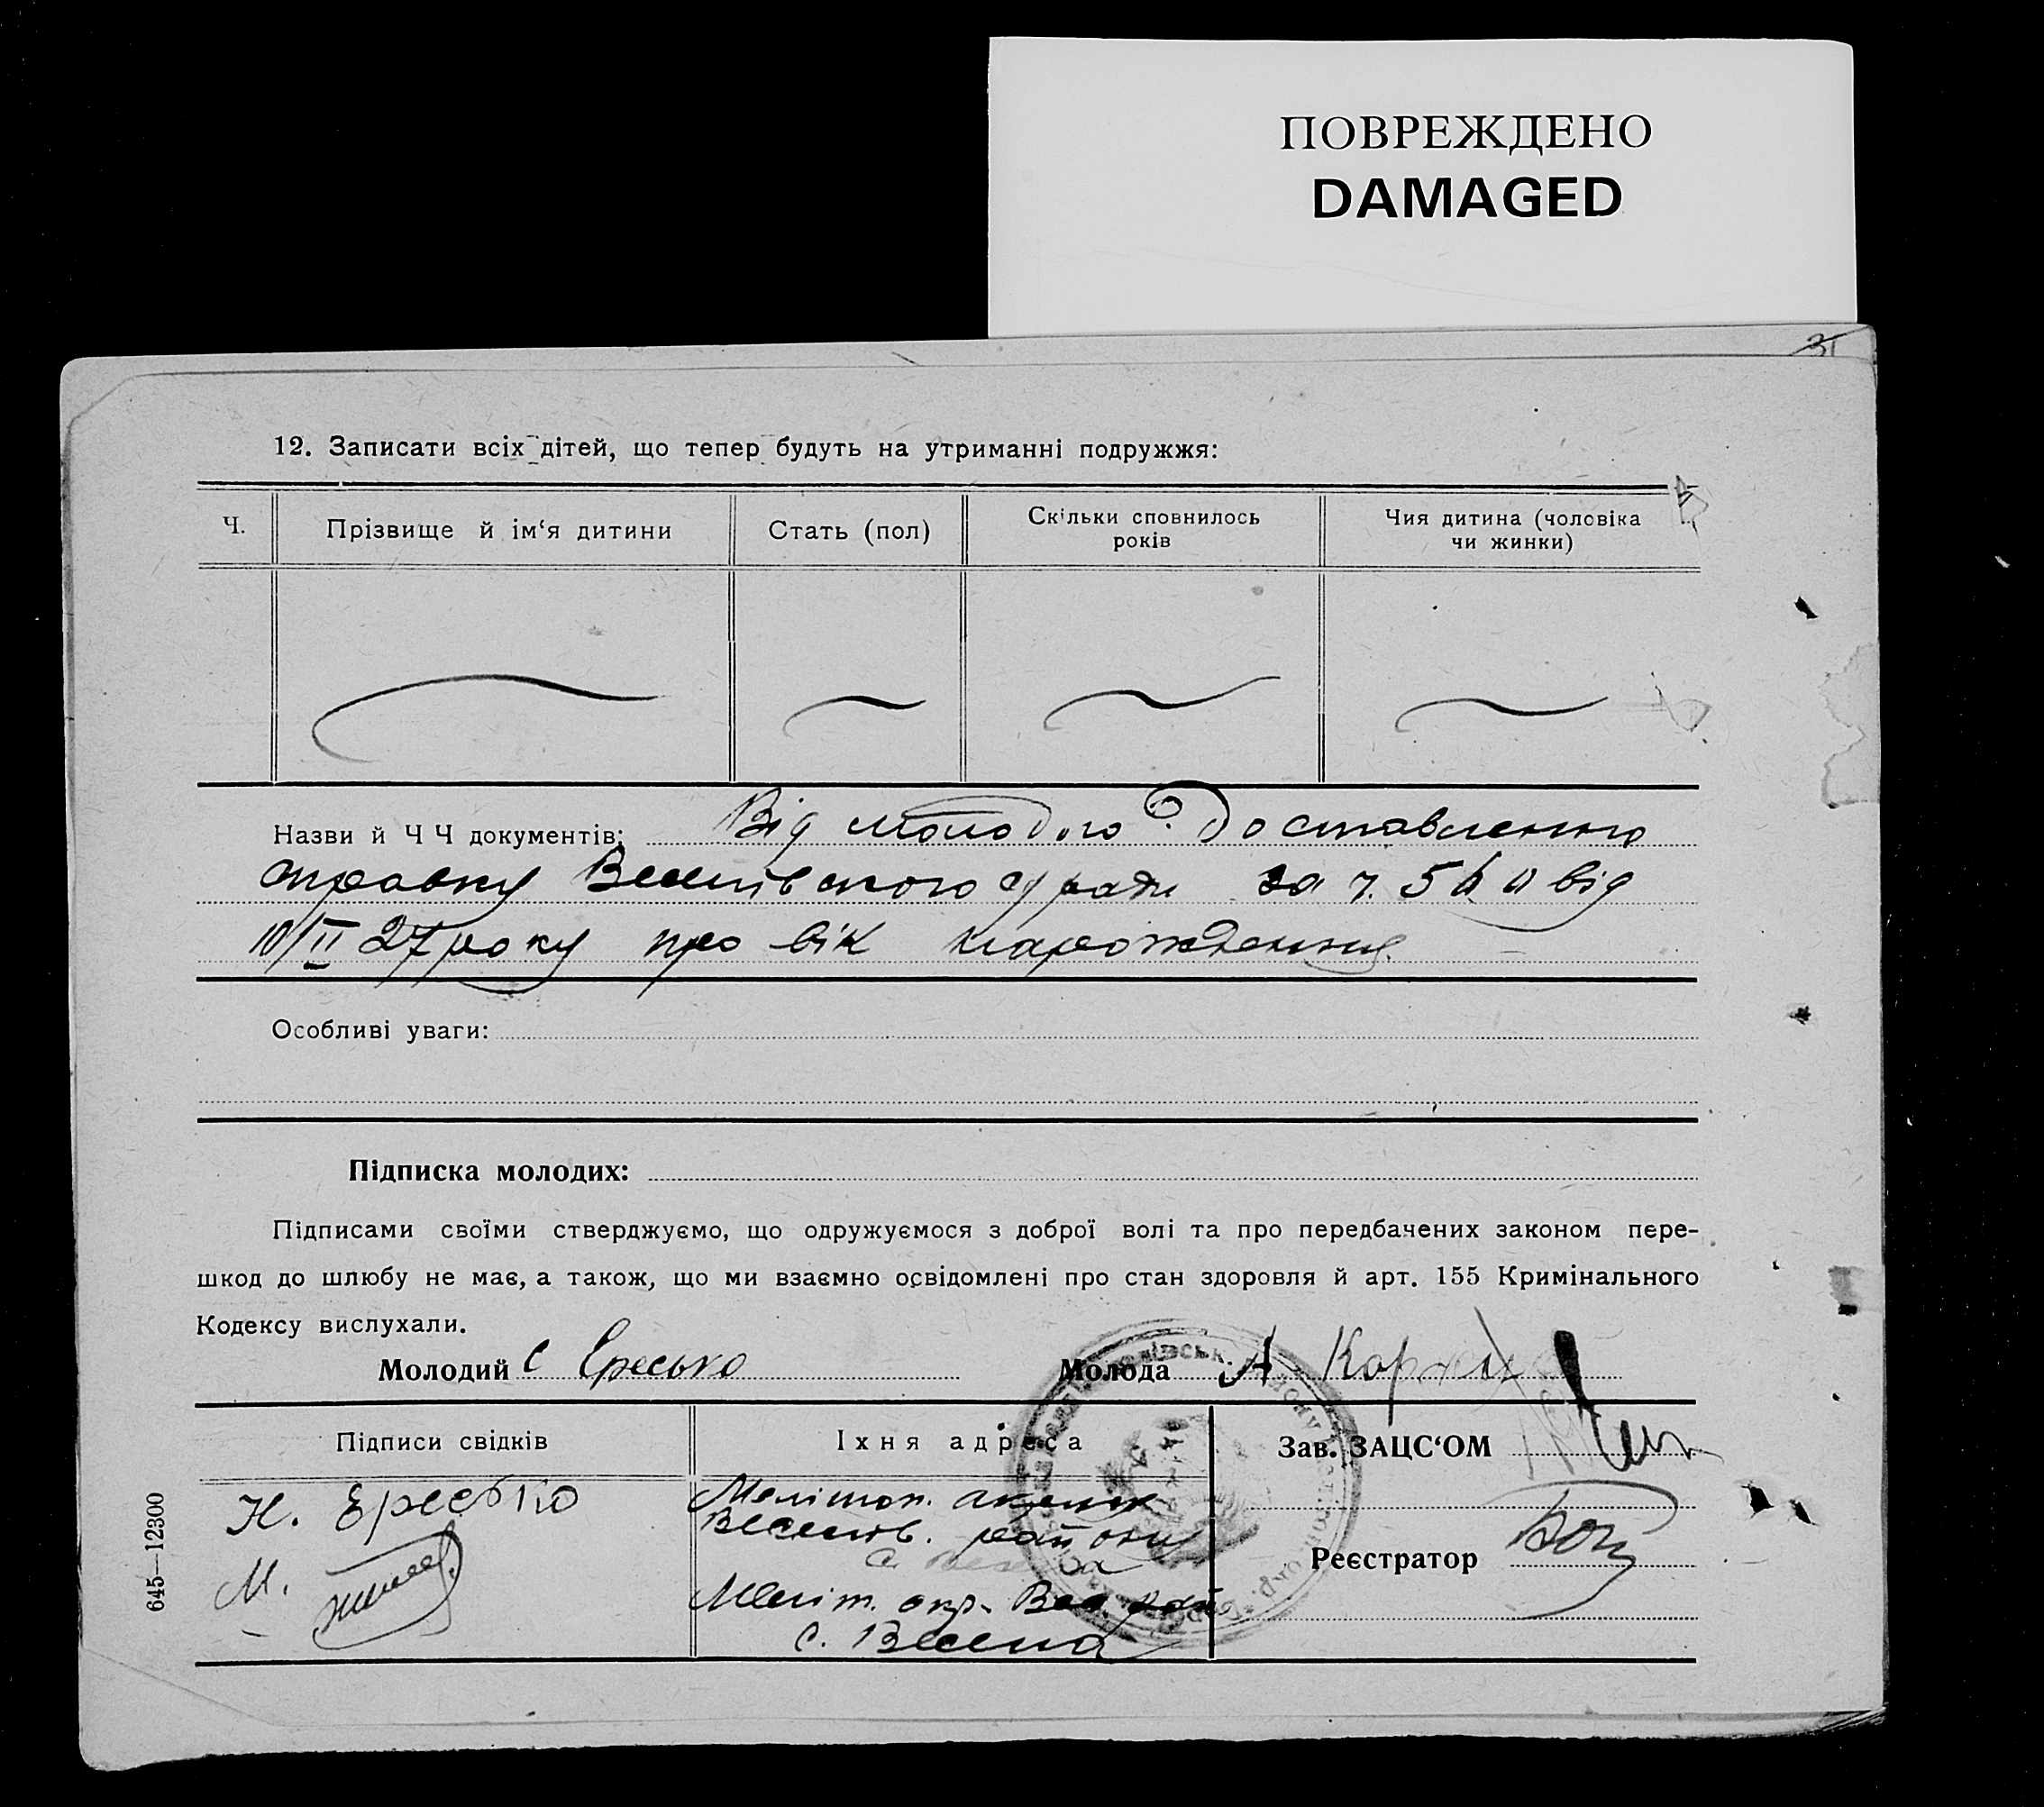 ПОВРЕЖДЕНО
DAMAGED
31
12. Записати всіх дітей, що тепер будуть на утриманні подружжя:
Ч.
Прізвище й ім‘я дитини
Стать (пол)
Скільки сповнилось
років
Чия дитина (чоловіка
чи жинки)
Від молодого
Назви й Ч Ч документів: Доставленно
справку Веселівского с/ради за ч. від
10/II 27 року про вік нарождення.
Особливі уваги:
Підписка молодих:
Підписами своїми стверджуємо, що одружуємося з доброї волі та про передбачених законом пере-
шкод до шлюбу не має, а також, що ми взаємно освідомлені про стан здоровля й арт. 155 Кримінального
Кодексу вислухали.
Молодий С Єресько
Молода А Корж
Підписи свідків
Їхня адреса
Зав. ЗАЦС‘ОМ
Н. Ересько
Мелітоп. округи
Веселів. району
М.
Реєстратор
Меліт. окр. Вес. рай
с. Весела
645—12300